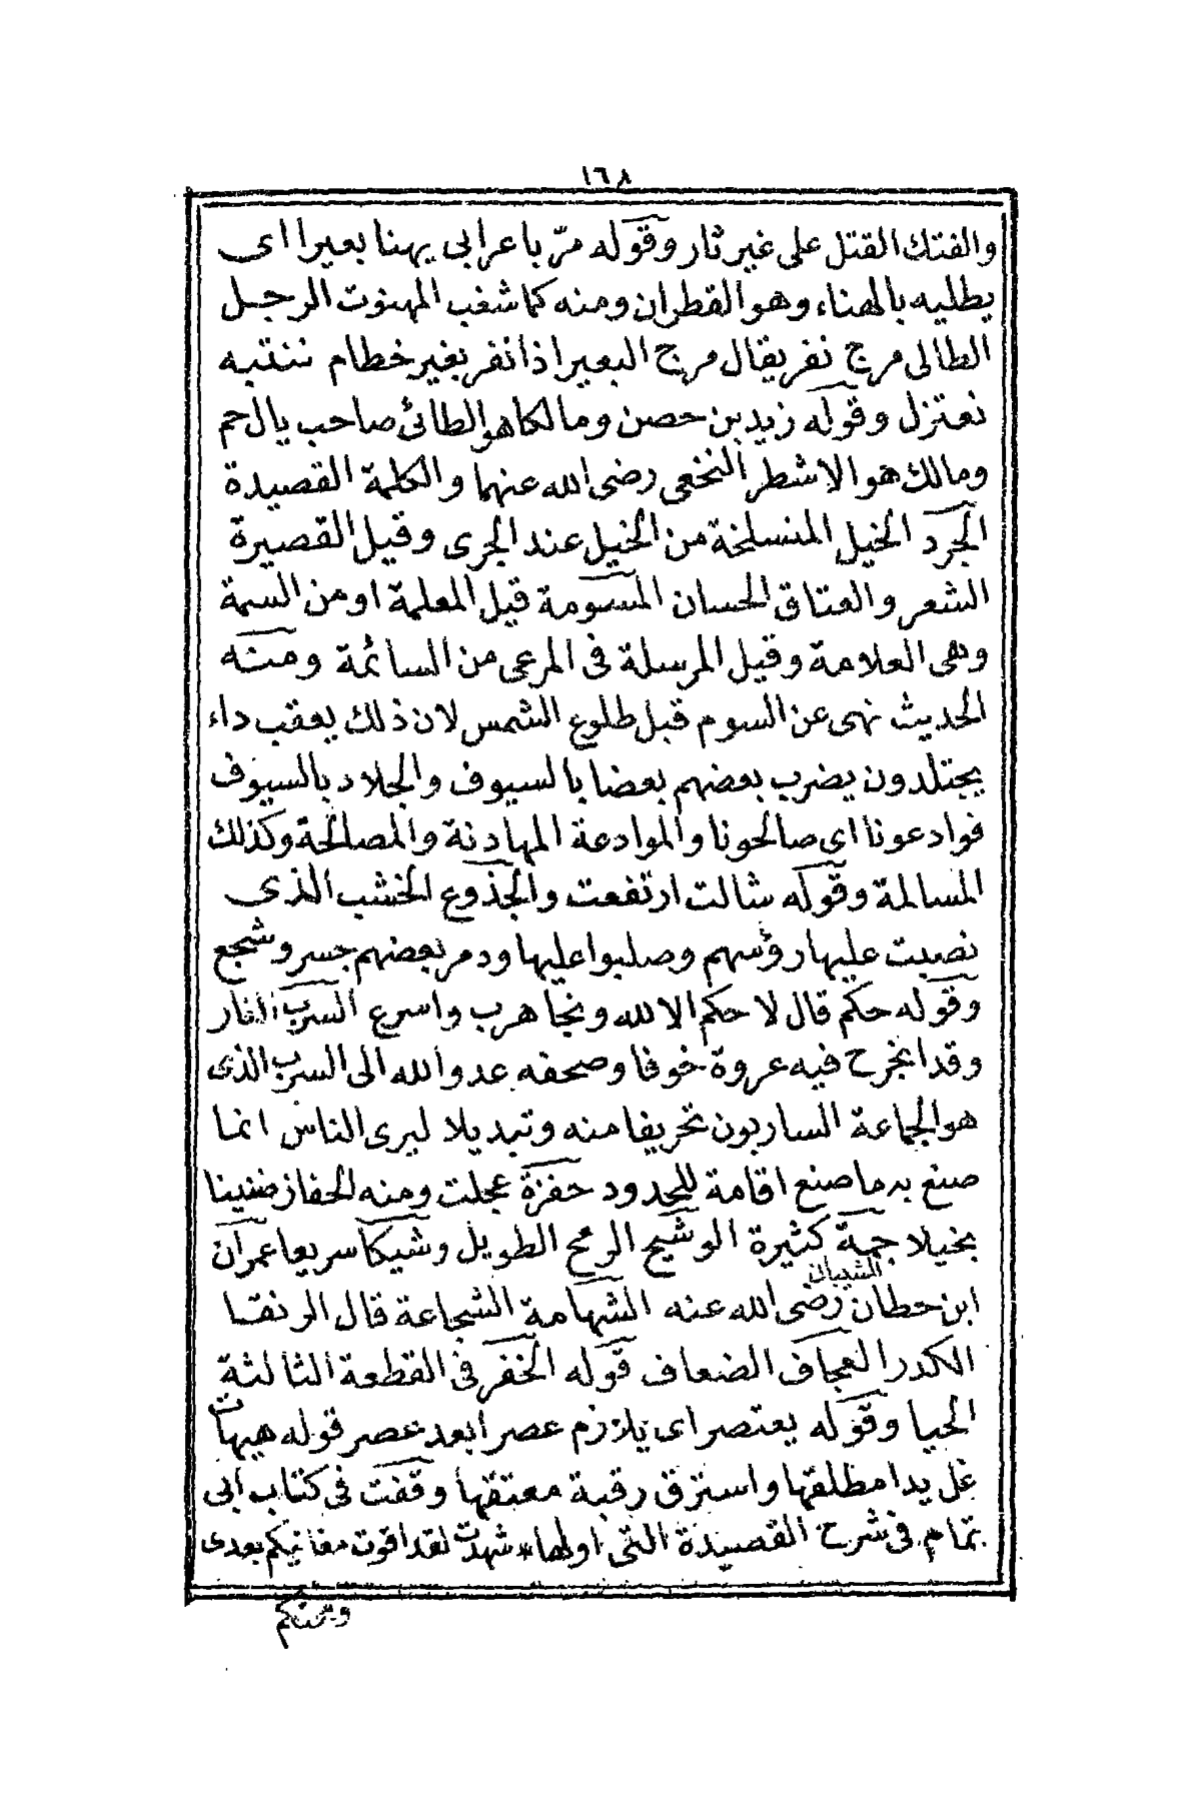 ١٦٨
والفتك القتل على غير ثار وقوله مرّ باعرابى يهنا بعيرا اى
يطليه بالهناء وهو القطران ومنه كما شغب المهنوت الرجل
الطالى مرج نفر يقال مرج البعير اذا نفر بغير خطام ننتبه
نعتزل وقوله زيد بن حصن ومالكا هو الطائى صاحب يال حم
ومالك هو الاشطر النخعى رضى الله عنهما والكلمة القصيدة
الجرد الخيل المنسلخة من الخيل عند الجرى وقيل القصيرة
الشعر والعتاق الحسان المسومة قيل المعلمة او من السمة
وهى العلامة وقيل المرسلة فى المرعى من السائمة ومنه
الحديث نهى عن السوم قبل طلوع الشمس لان ذلك يعقب داء
يجتلدون يضرب بعضهم بعضا بالسيوف والجلاد بالسيوف
فوادعونا اى صالحونا والموادعة المهادنة والمصالحة وكذلك
المسالمة وقوله شالت ارتفعت والجذوع الخشب الذى
نصبت عليها رؤسهم وصلبوا عليها ودمر بعضهم جسر وشجع
وقوله حكم قال لا حكم الا لله ونجا هرب واسرع السرب النار
وقد ابخرح فيه عروة خوفا وصحفه عدو الله الى السرب الذى
هو الجماعة الساربون تحريفا منه وتبديلا ليرى الناس انما
صنع به ما صنع اقامة للحدود حفزة عجلت ومنه الحفاز ضنينا
بخيلا جمة كثيرة الوشيح الرمح الطويل وشيكا سريعا عمران
ابن حطان الشيبان رضى الله عنه الشهامة الشجاعة قال الرنقا
الكدر العجاف الضعاف قوله الخفر فى القطعة الثالثة
الحيا وقوله يعتصر اى يلازم عصرا بعد عصر قوله هيهات
غل يدا مطلقها واسترق رقبة معتقها وقفت فى كتاب ابى
تمام فى شرح القصيدة التى اولها * شهدت لقد اقوت مغانيكم بعدى